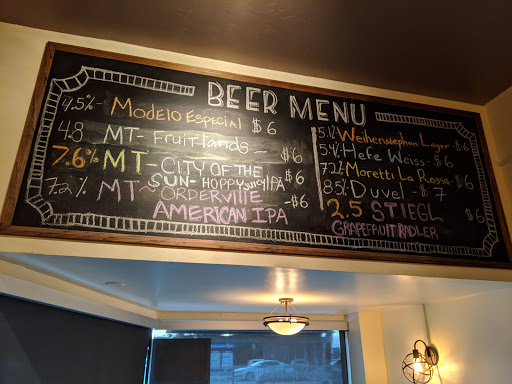 BEER MENU
4.5%- MODELO ESPECIAL $6
4.8 MT- Fruitlands - $6
7.6% MT- CITY OF THE
SUN- HOPPY IPA
7.2% MT- ORDERVILLE -$6
AMERICAN IPA
5.1% Weihenstephan Lager- $6
5.4% Hefe Weiss- $6
7.2% Moretti La Rossa -$6
8.5% Duvel - $7
2.5 STIEGL $6
GRAPEFRUIT RADLER